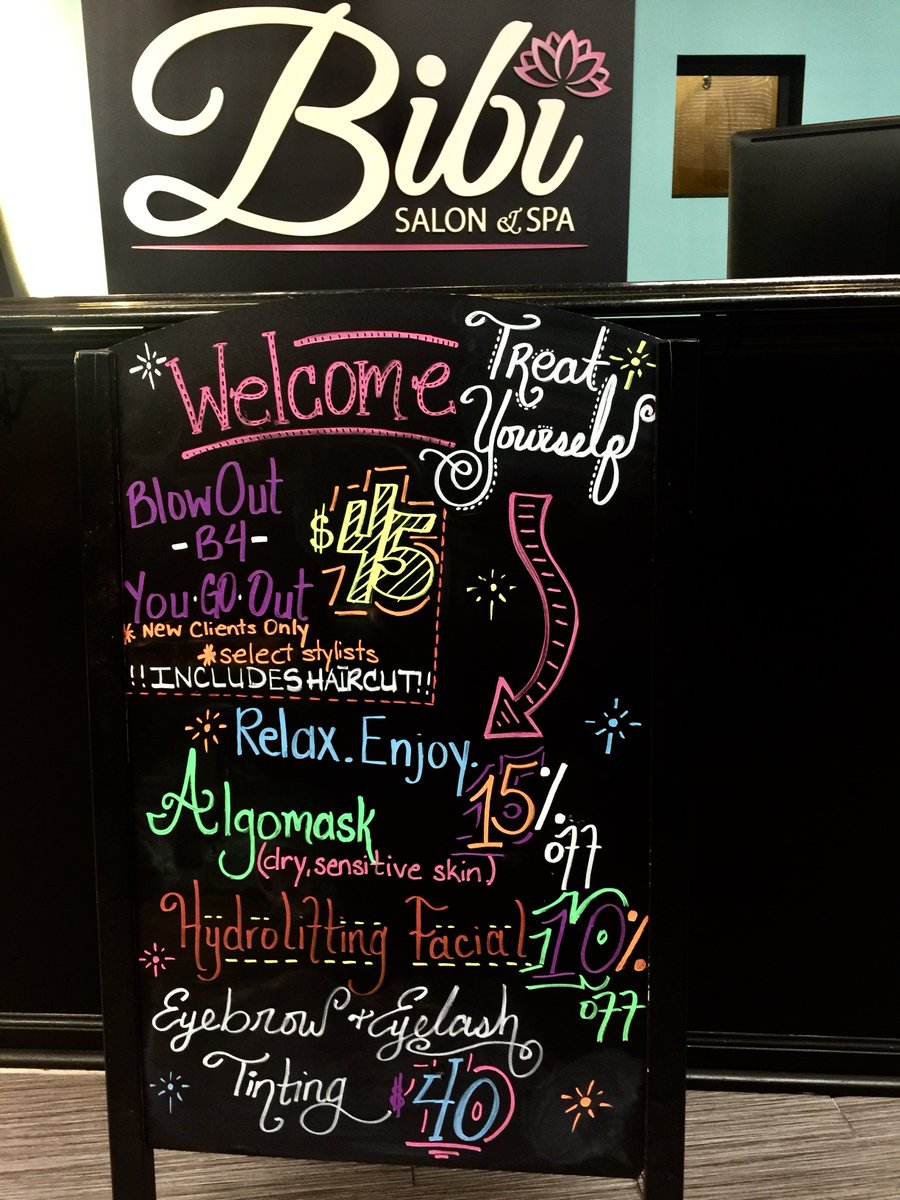 Bibi
SALON & SPA
Welcome
Treat
Yourself
BlowOut
-B4-
You·GO·Out
$45
* New Clients Only
*select stylists
!!INCLUDES HAIRCUT!!
Relax. Enjoy.
Algomask
(dry, sensitive skin)
15% off
Hydrolifting Facial 10%
off
Eyebrow + Eyelash
Tinting $40